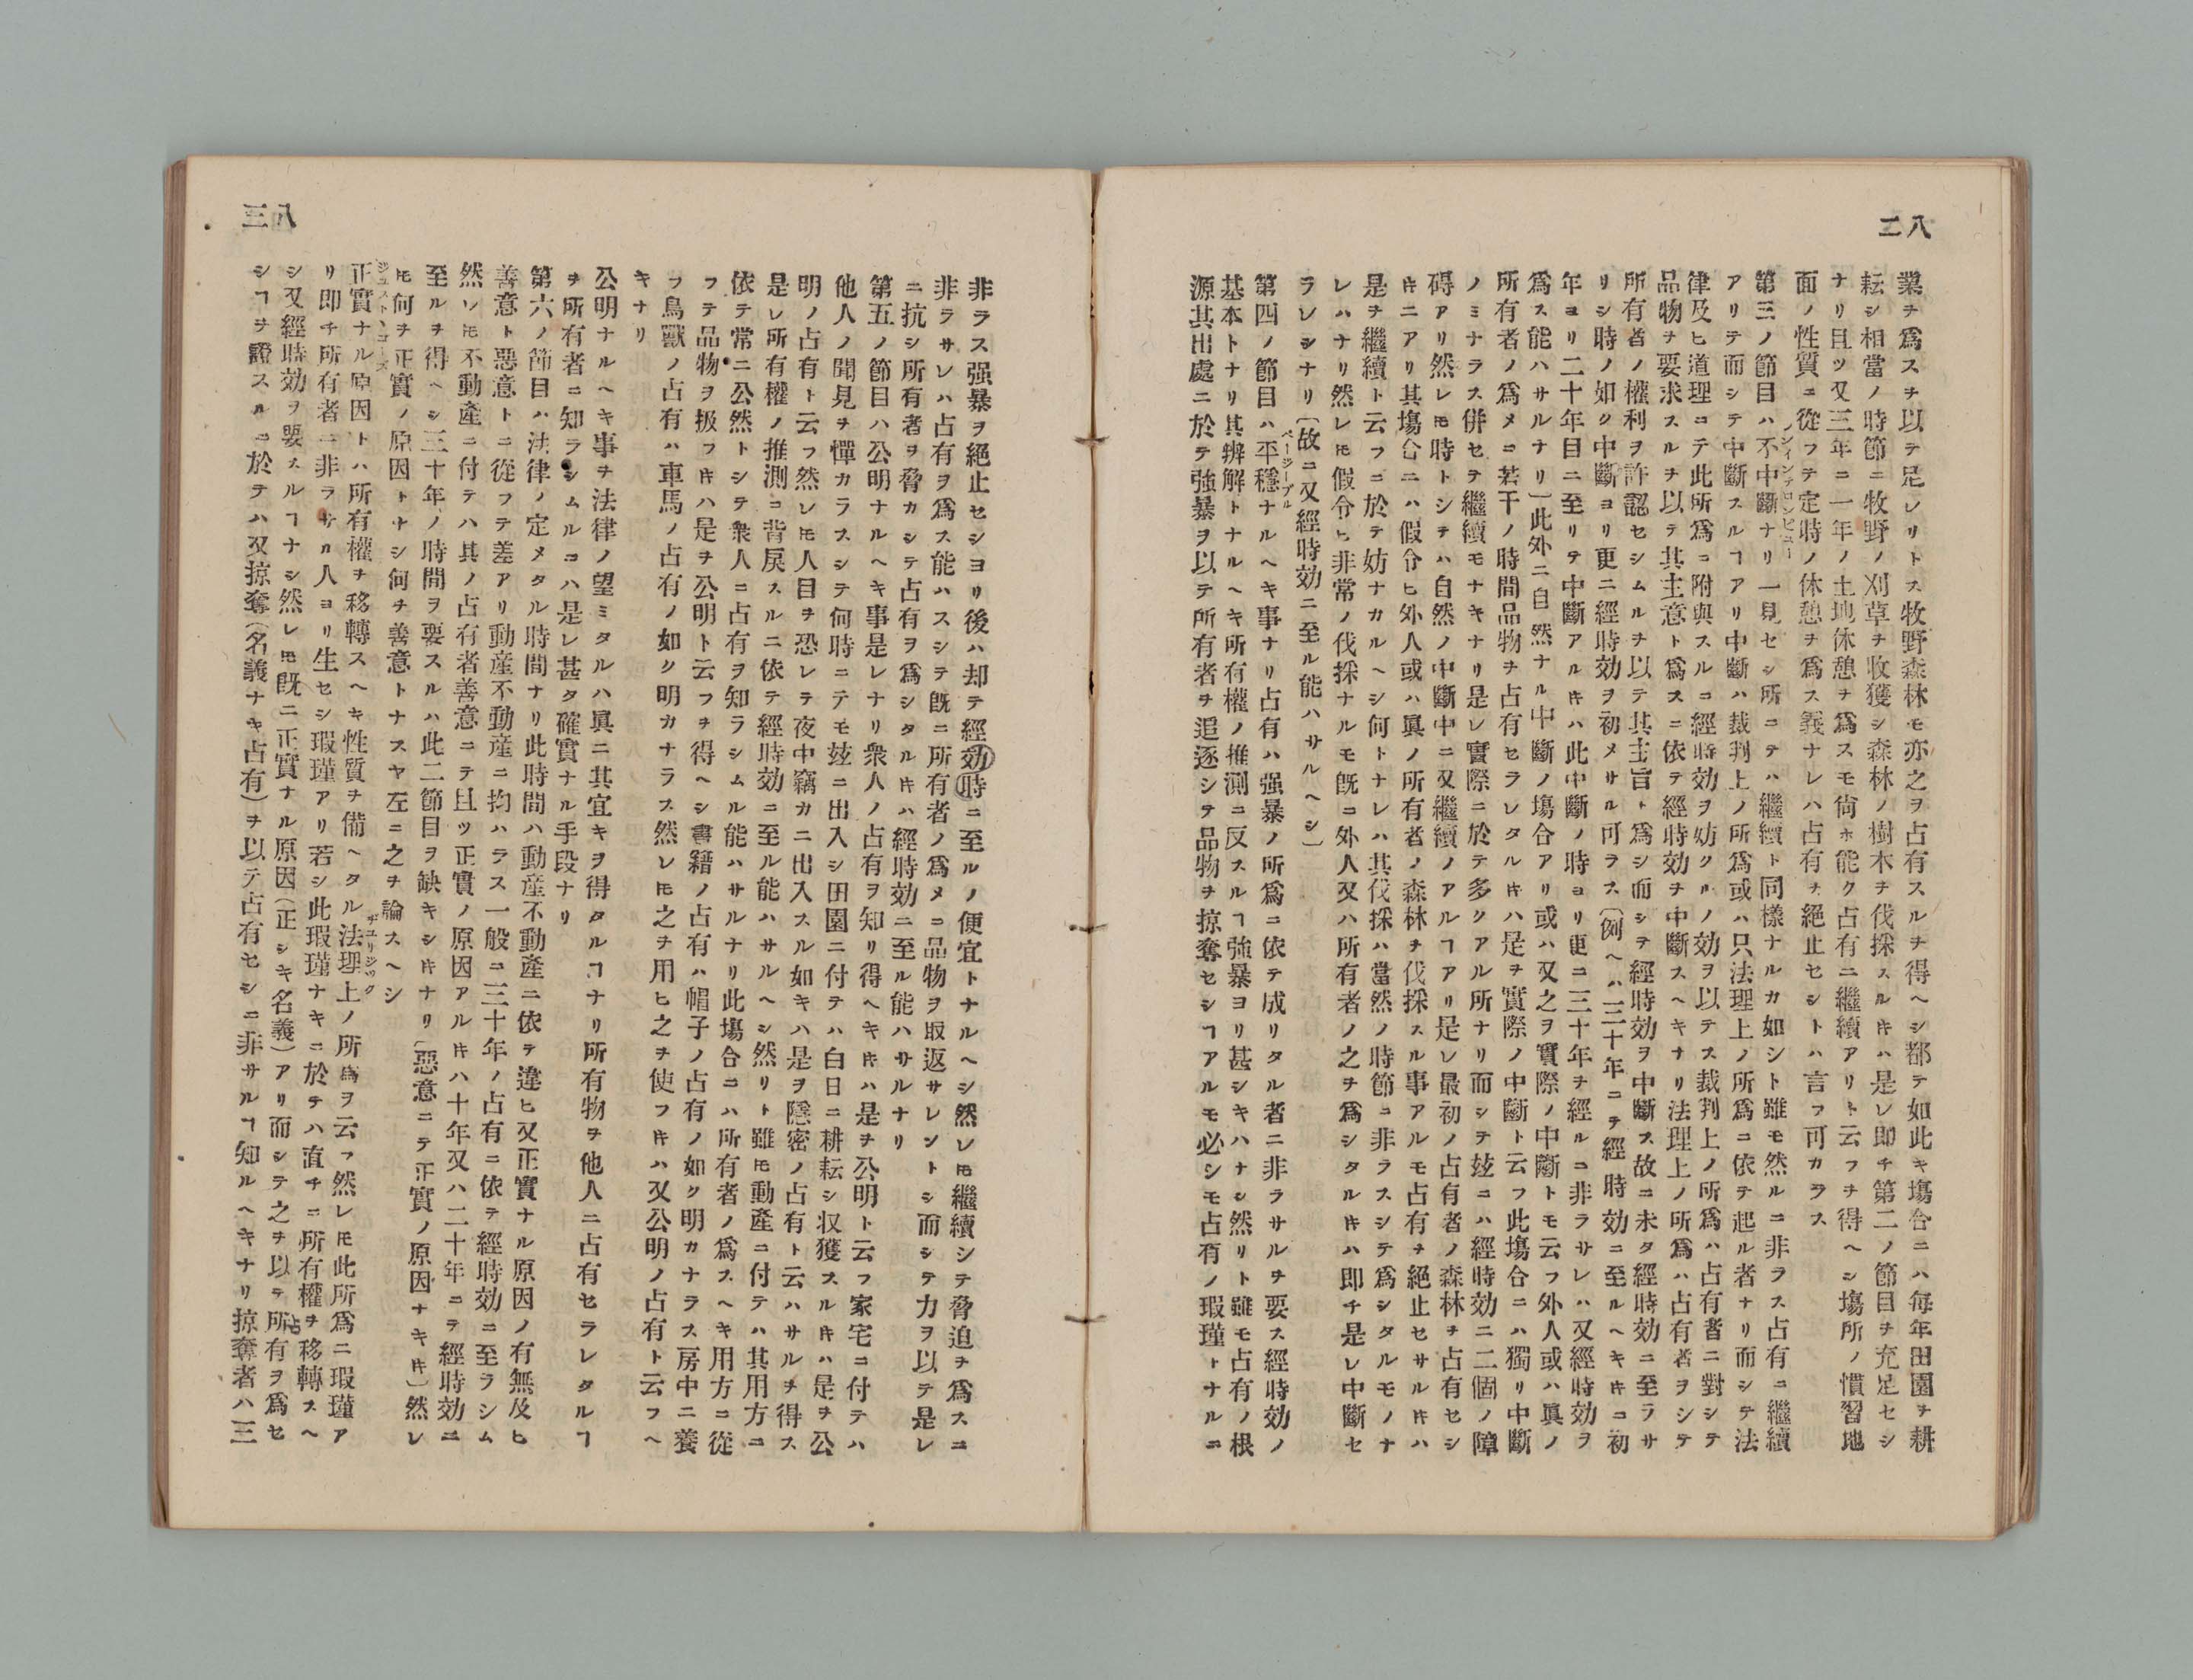 八二
業チ爲スチ以テ足レリトス牧野森林モ亦之ヲ占有スルチ得ヘシ都テ如此キ塲合ニハ毎年田園チ耕
耘シ相當ノ時節ニ牧野ノ刈草チ收獲シ森林ノ樹木チ伐採スルキハ是レ即チ第二ノ節目チ充足セシ
ナリ且ツ又三年ニ一年ノ土地休憩チ爲スモ尙ホ能ク占有ニ繼續アリト云フチ得ヘシ塲所ノ慣習地
面ノ性質ニ從フテ定時ノ休憩チ爲ス義ナレハ占有チ絕止セシトハ言フ可カラス
第三ノ節目ハ不中斷ナリ一見セシ所ニテハ繼續ト同樣ナルカ如シト雖モ然ルニ非ラス占有ニ繼續
アリテ而シテ中斷スルヿアリ中斷ハ裁判上ノ所爲或ハ只法理上ノ所爲ニ依テ起ル者ナリ而シテ法
律及ヒ道理ニテ此所爲ニ附與スルニ經時効ヲ妨クルノ効ヲ以テス裁判上ノ所爲ハ占有者ニ對シテ
品物チ要求スルチ以テ其主意ト爲スニ依テ經時効チ中斷スヘキナリ法理上ノ所爲ハ占有者ヲシテ
所有者ノ權利ヲ許認セシムルチ以テ其主旨ト爲シ而シテ經時効ヲ中斷ス故ニ未タ經時効ニ至ラサ
リシ時ノ如ク中斷ヨリ更ニ經時効ヲ初メサル可ラス〔例ヘハ三十年ニテ經時効ニ至ルヘキキニ初
年ヨリ二十年目ニ至リテ中斷アルキハ此中斷ノ時ヨリ更ニ三十年チ經ルニ非ラサレハ又經時効ヲ
爲ス能ハサルナリ〕此外ニ自然ナル中斷ノ塲合アリ或ハ又之ヲ實際ノ中斷トモ云フ外人或ハ眞ノ
所有者ノ爲メニ若干ノ時間品物チ占有セラレタルキハ是ヲ實際ノ中斷ト云フ此塲合ニハ獨リ中斷
ノミナラス併セヲ繼續モナキナリ是レ實際ニ於テ多クアル所ナリ而シテ玆ニハ經時効ニ二個ノ障
碍アリ然レモ時トシテハ自然ノ中斷中ニ又繼續ノアルヿアリ是レ最初ノ占有者ノ森林チ占有セシ
キニアリ其塲合ニハ假令ヒ外人或ハ眞ノ所有者ノ森林チ伐採スル事アルモ占有チ絕止セサルキハ
是チ繼續ト云フニ於テ妨ナカルヘシ何トナレハ其伐採ハ當然ノ時節ニ非ラスシテ爲シタルモノナ
レハナリ然レモ假令ヒ非常ノ伐採ナルモ既ニ外人又ハ所有者ノ之チ爲シタルキハ即チ是レ中斷セ
ラレシナリ〔故ニ又經時効ニ至ル能ハサルヘシ〕
ページーブル
第四ノ節目ハ平穩ナルヘキ事ナリ占有ハ强暴ノ所爲ニ依テ成リタル者ニ非ラサルチ要ス經時効ノ
基本トナリ其辨解トナルヘキ所有權ノ推測ニ反スルヿ強暴ヨリ甚シキハナシ然リト雖モ占有ノ根
源其出處ニ於テ強暴ヲ以テ所有者ヲ追逐シテ品物ヲ掠奪セシヿアルモ必シモ占有ノ瑕瑾トナルニ
八三
非ラス强暴ヲ絕止セシヨリ後ハ却テ經効時ニ至ルノ便宜トナルヘシ然レモ繼續シテ脅迫チ爲スニ
非ラサレハ占有ヲ爲ス能ハスシテ既ニ所有者ノ爲メニ品物ヲ取返サレントシ而シテ力ヲ以テ是レ
ニ抗シ所有者ヲ脅カシテ占有ヲ爲シタルキハ經時効ニ至ル能ハサルナリ
第五ノ節目ハ公明ナルヘキ事是レナリ衆人ノ占有ヲ知リ得ヘキキハ是チ公明ト云フ家宅ニ付テハ
他人ノ聞見チ憚カラスシテ何時ニテモ玆ニ出入シ田園ニ付テハ白日ニ耕耘シ収獲スルキハ是チ公
明ノ占有ト云フ然レモ人目チ恐レテ夜中竊カニ出入スル如キハ是ヲ隱密ノ占有ト云ハサルチ得ス
是レ所有權ノ推測ニ背戾スルニ依テ經時効ニ至ル能ハサルヘシ然リト雖モ動產ニ付テハ其用方ニ
依テ常ニ公然トシテ衆人ニ占有ヲ知ラシムル能ハサルナリ此塲合ニハ所有者ノ爲スヘキ用方ニ從
フテ品物ヲ扱フキハ是ヲ公明ト云フヲ得ヘシ書籍ノ占有ハ帽子ノ占有ノ如ク明カナラス房中ニ養
フ鳥獸ノ占有ハ車馬ノ占有ノ如ク明カナラス然レモ之チ用ヒ之チ使フキハ又公明ノ占有ト云フヘ
キナリ
公明ナルヘキ事チ法律ノ望ミタルハ眞ニ其宜キヲ得タルヿナリ所有物ヲ他人ニ占有セラレタルヿ
ヲ所有者ニ知ラシムルニハ是レ甚タ確實ナル手段ナリ
第六ノ節目ハ法律ノ定メタル時間ナリ此時間ハ動產不動產ニ依テ違ヒ又正實ナル原因ノ有無及ヒ
善意ト惡意トニ從フテ差アリ動產不動產ニ拘ハラス一般ニ三十年ノ占有ニ依テ經時効ニ至ラシム
然レモ不動產ニ付テハ其ノ占有者善意ニテ且ツ正實ノ原因アルキハ十年又ハ二十年ニテ經時効ニ
至ルヲ得ヘシ三十年ノ時間ヲ要スルハ此二節目ヲ缺キシキナリ〔惡意ニテ正實ノ原因ナキキ〕然レ
モ何ヲ正實ノ原因トナシ何チ善意トナスヤ左ニ之チ論スヘシ
ジュスト、コーズ
ヂュリジック
正實ナル原因トハ所有權チ移轉スヘキ性質チ備ヘタル法理上ノ所爲ヲ云フ然レモ此所爲ニ瑕瑾ア
リ即チ所有者ニ非ラサル人ヨリ生セシ瑕瑾アリ若シ此瑕瑾ナキニ於テハ直チニ所有權ヲ移轉スヘ
シ又經時効ヲ要スルヿナシ然レモ既ニ正實ナル原因(正シキ名義)アリ而シテ之チ以テ所有ヲ爲セ
シヿヲ證スルニ於テハ又掠奪(名義ナキ占有)ヲ以テ占有セシニ非サルヿ知ルヘキナリ掠奪者ハ三